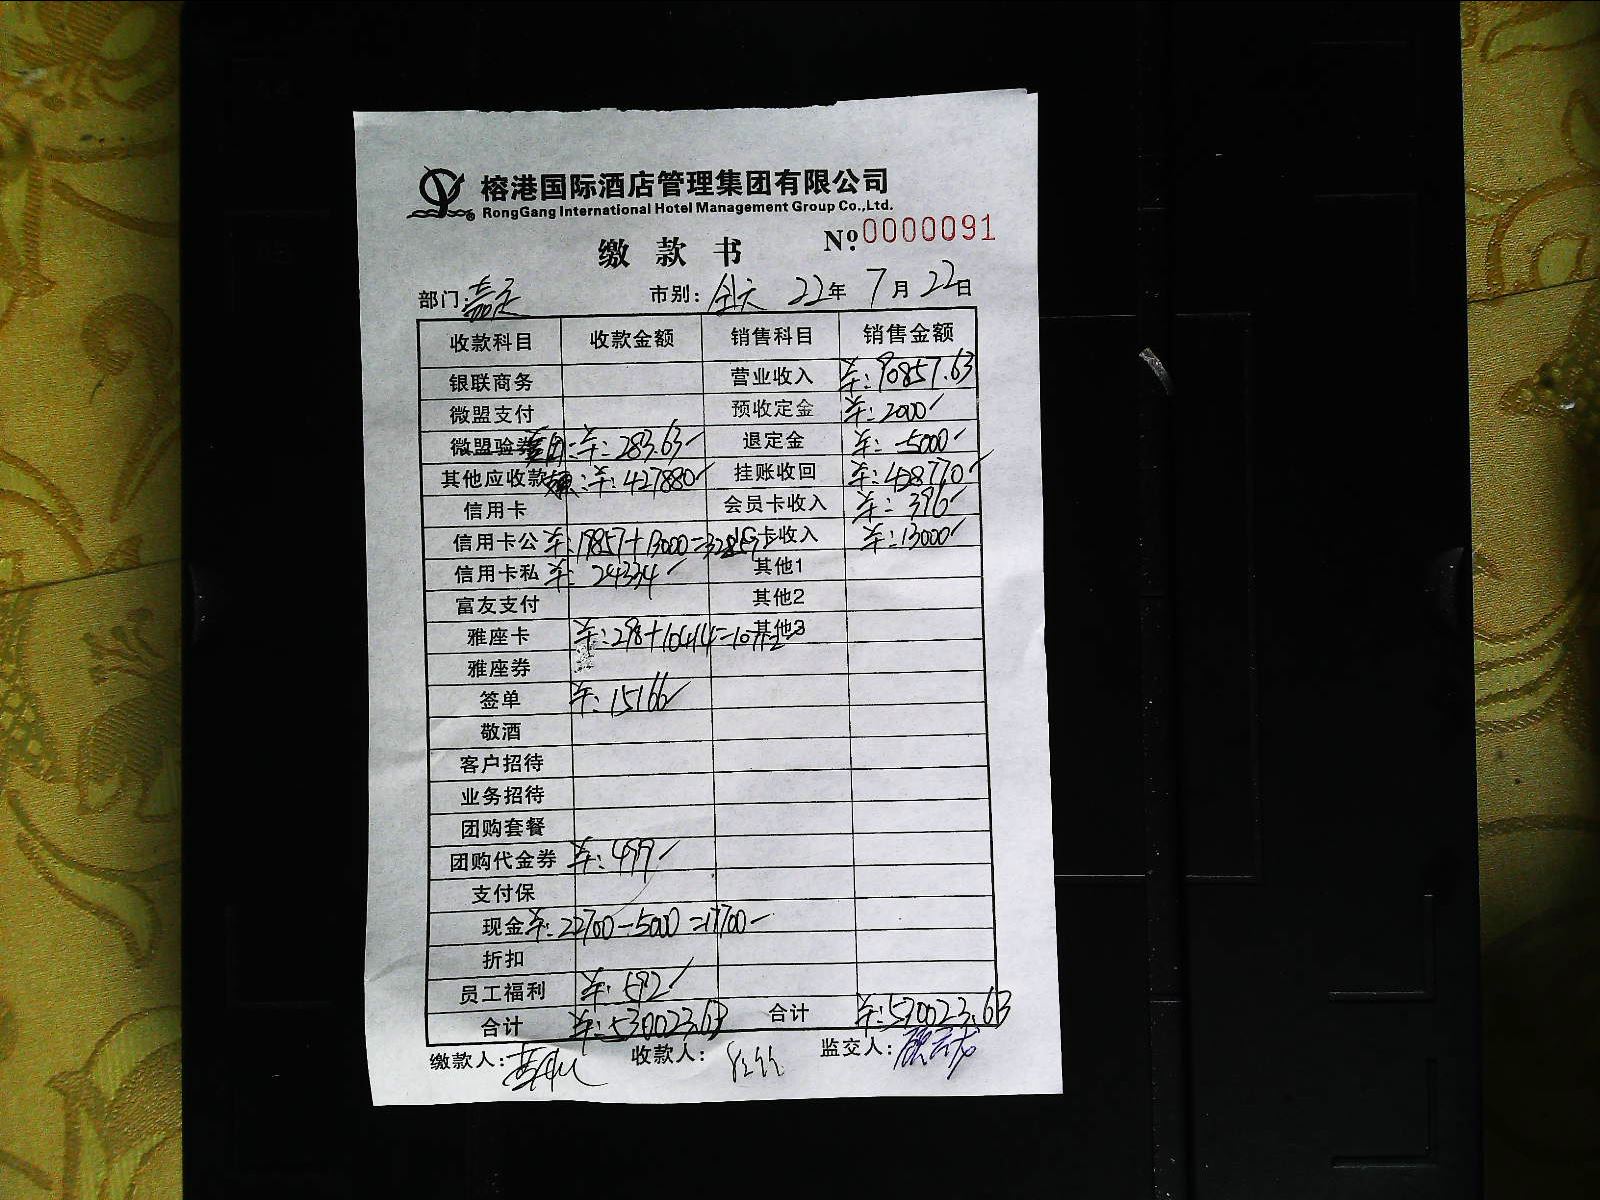 榕港国际酒店管理集团有限公司
RongGang International Hotel Management Group Co.,Ltd.
缴款书 Nº:0000091
部门:嘉定 市别:全天 22年7月22日
收款科目 收款金额 销售科目 销售金额
银联商务 营业收入 卡:90857.63
微盟支付 预收定金 卡:2000
微盟验券 美团:卡:283.63 退定金 卡:-5000
其他应收款 卡:427880 挂账收回 卡:428770
信用卡 会员卡收入 卡:396
信用卡公 卡:19857+13000= IC卡收入 卡:13000
信用卡私 卡:24334 其他1
富友支付 其他2
雅座卡 卡:298+10414= 其他3
雅座券
签单 卡:15166
敬酒
客户招待
业务招待
团购套餐
团购代金券 卡:499
支付保
现金 卡:22700-5000=17700
折扣
员工福利 卡:592
合计 卡:530023.63 合计 卡:530023.63
缴款人: 收款人: 监交人: